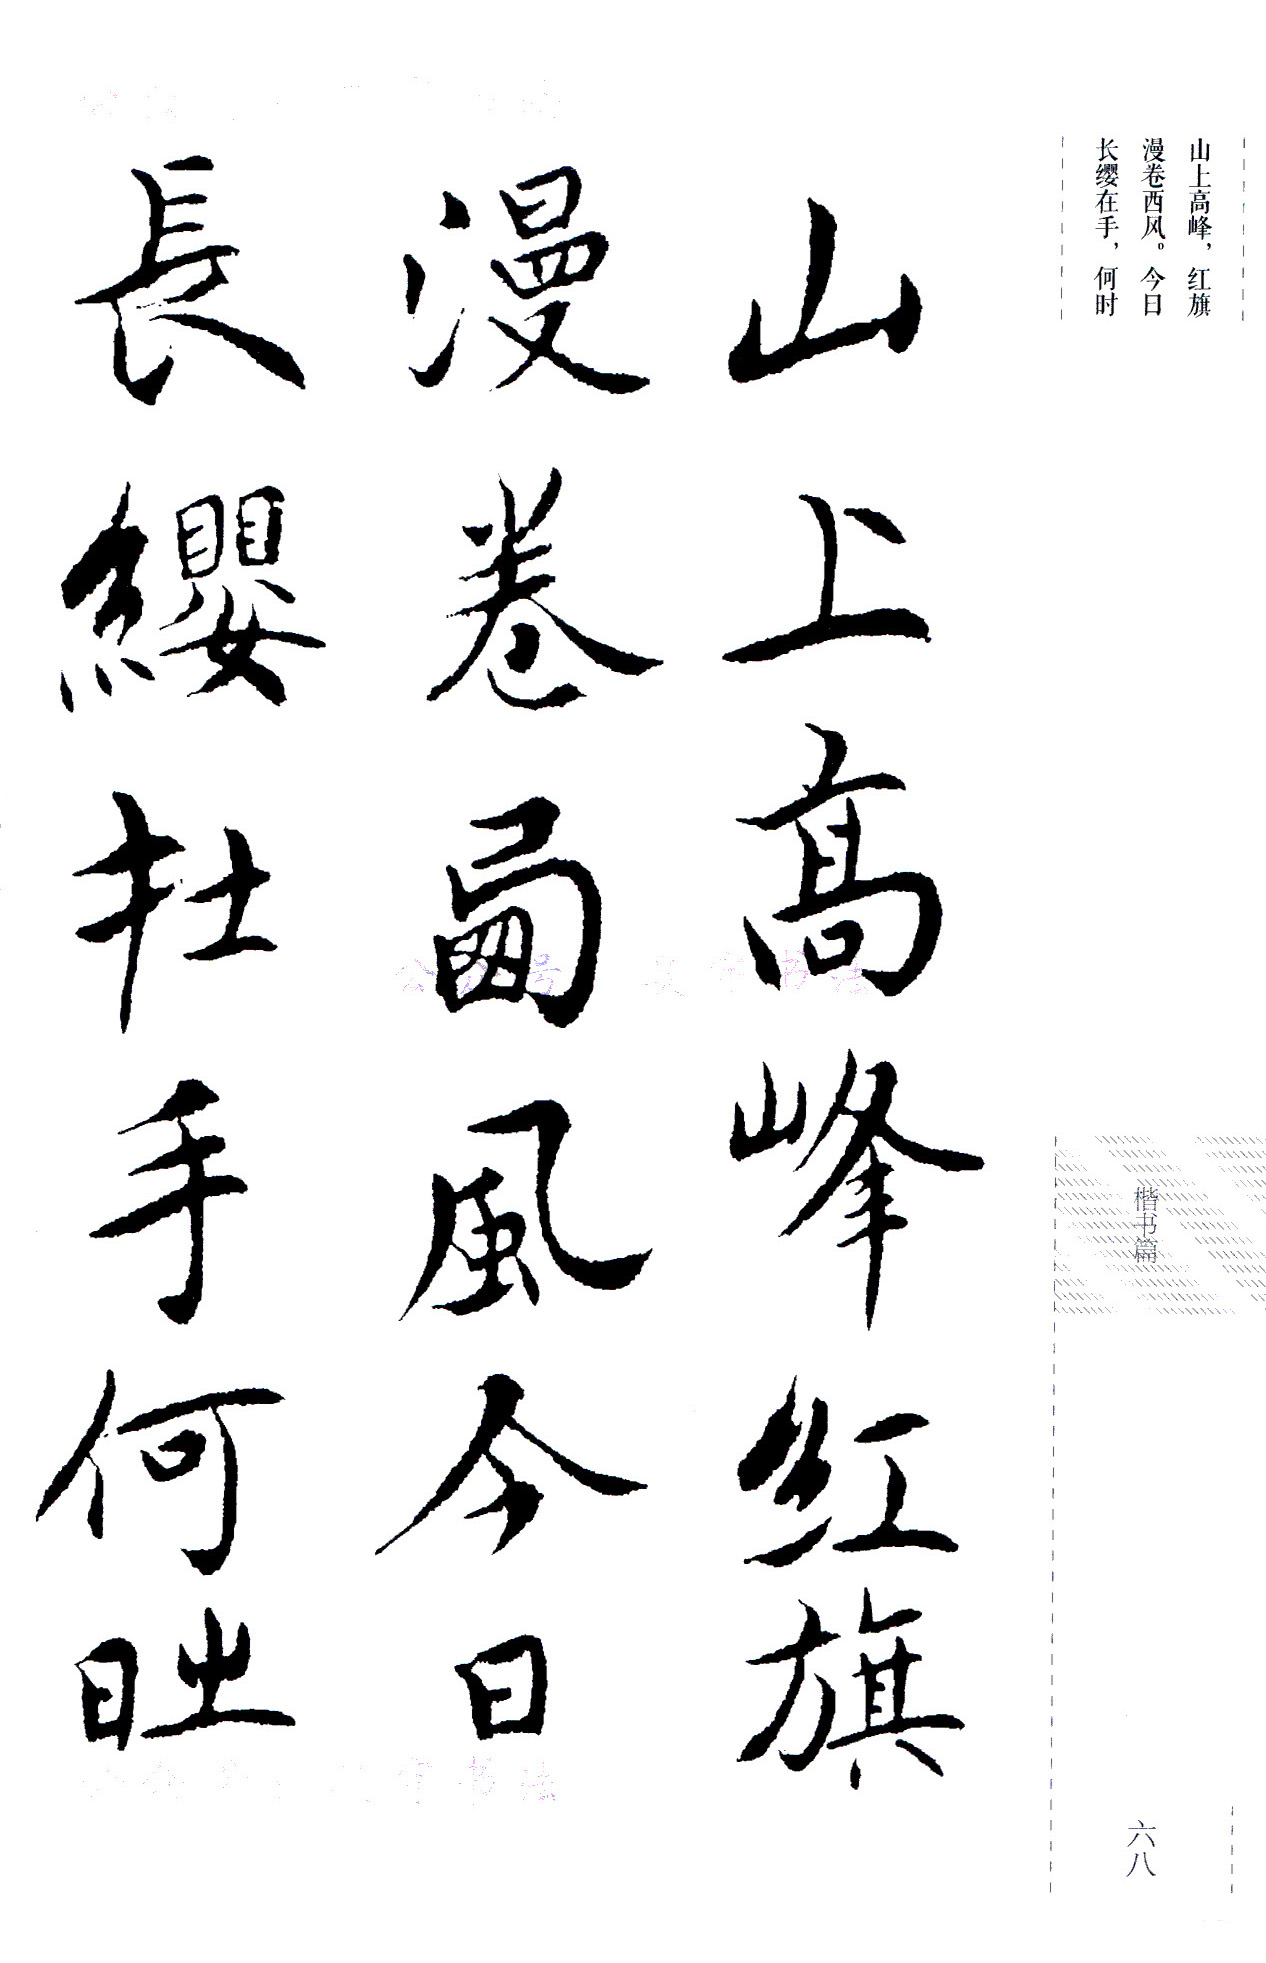 山上高峰，红旗
漫卷西风。今日
长缨在手，何时
山上高峰紅旗
漫卷㢴風今日
長纓在手何旹
楷书篇
六八